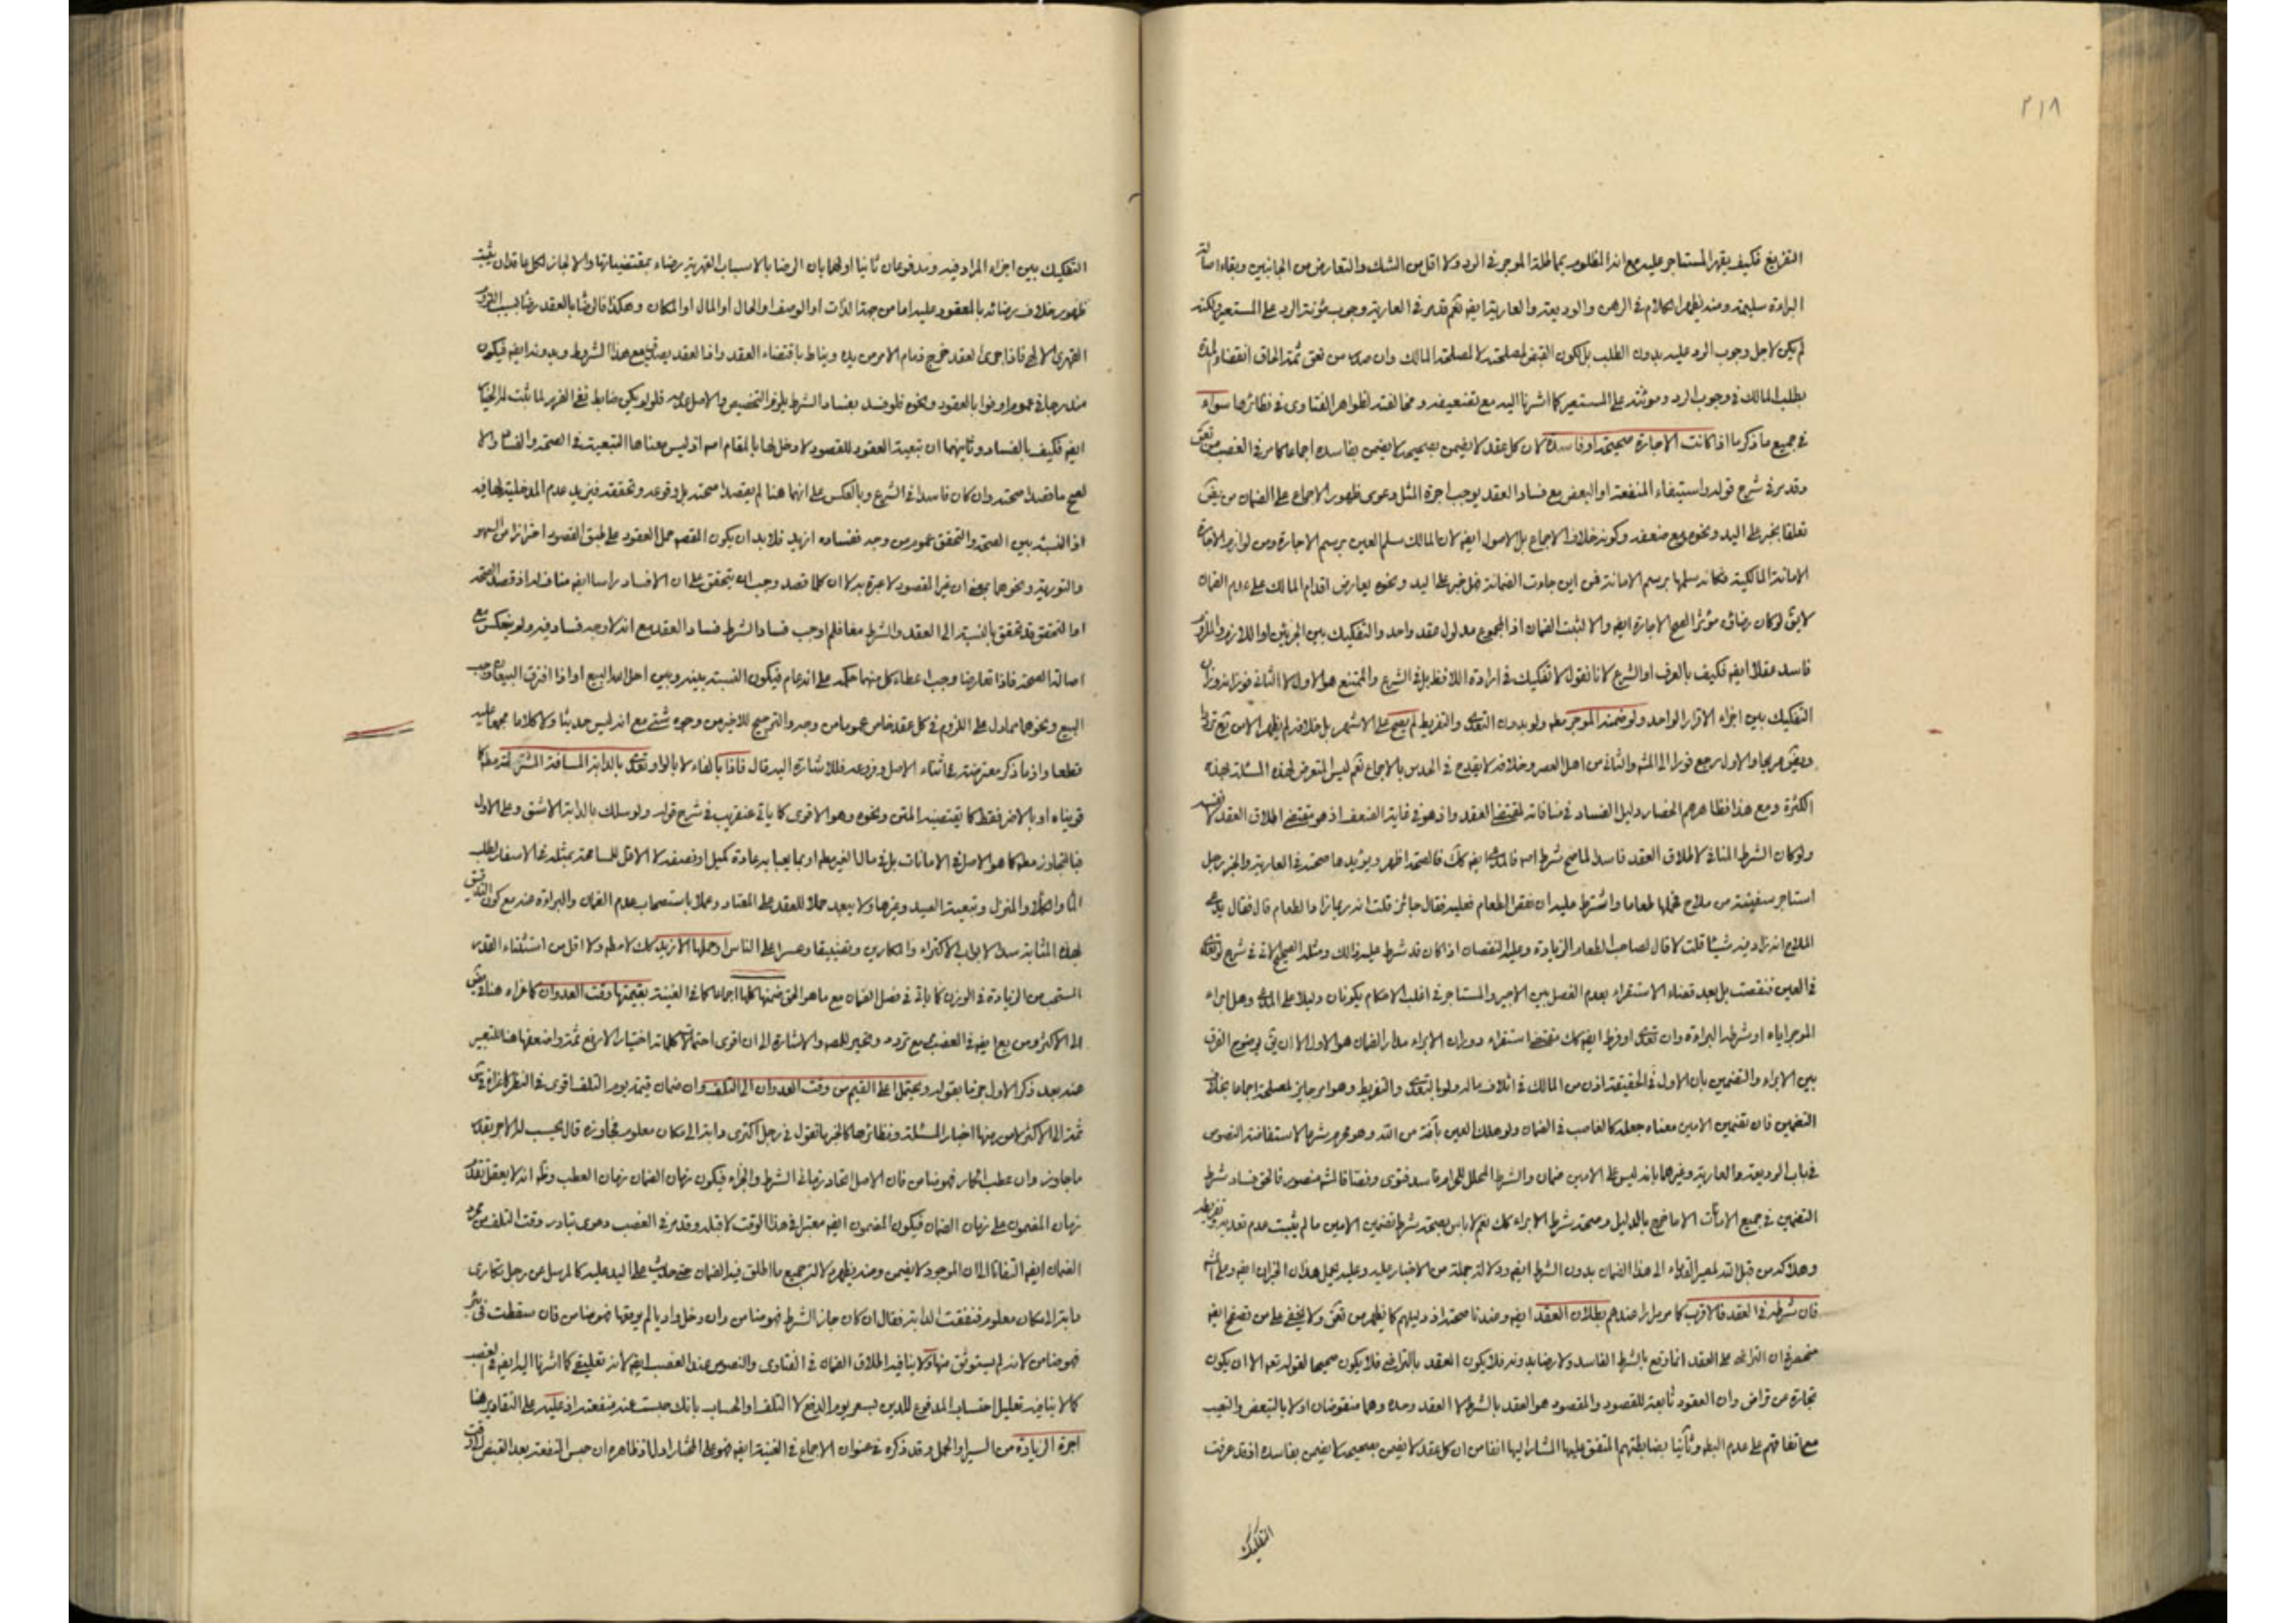 ٢١٨
التفريغ فكيف يقهر المستاجر عليه مع انه المظلوم بمماطلة الموجر في الرد ولا اقل من الشك والتعارض من الجانبين وبقاء اصالة
البراءة سليمة ومنه يظهر الكلام في الرهن والوديعة والعارية ايضا نعم قد مر في العارية وجوب مؤنة الرد على المستعير ولكنه
لم يكن لاجل وجوب الرد عليه بدون الطلب بل لكون القبض لمصلحته لا لمصلحة المالك وان صدر من بعض ثمة الحاق انقضاء المدة
بطلب المالك في وجوب الرد ومؤنته على المستعير كما اشرنا اليه مع تضعيفه ومخالفته لظواهر الفتاوى في نظائرها سواء
في جميع ما ذكر ما اذا كانت الاجارة صحيحة او فاسدة لان كل عقد لا يضمن بصحيحه لا يضمن بفاسده اجماعا كما مر في الغصب
وقد مر في شرح قوله واستيفاء المنفعة او البعض مع فساد العقد يوجب اجرة المثل دعوى ظهور الاجماع على الضمان من بعض
تعلقا بخبر على اليد ونحوه مع ضعفه وكونه خلاف الاجماع بل الاصول ايضا لان المالك سلم العين برسم الاجارة ومن لوازم الاجارة
الامانة المالكية فكانه سلمها برسم الامانة فمن اين جاءت الضمانة فل خبر على اليد ونحوه يعارض اقدام المالك على عدم الضمان
لا يق لو كان رضائه مؤثرا لصح الاجارة ايضا والا لثبت الضمان اذ المجموع مدلول عقد واحد والتفكيك بين الجزئين او اللازم والملزوم
فاسد عقلا ايضا فكيف بالعرف او الشرع لانا نقول لا تفكيك في ارادة اللافظ بل في الشرع والممتنع هو الاول لا الثاني
التفكيك بين اجزاء الاقرار الواحد ولو ضمنه الموجر مط ولو بدون التعدي والتفريط لم يصح على الاشهر بل خلافه لم يظهر الا من
والاول رجع فورا الى المش والثاني من اهل العصر وخلافه لا يقدح في الحدس بالاجماع نعم ليس المتعرض لهذه المسئلة بهذه
الكثرة ومع هذا فظاهرهم الحصار ودليل الفساد في منافاته لمقتضى العقد واذ هو في غاية الضعف اذ هو مقتضى اطلاق العقد لا نفسه
ولو كان الشرط المنافي لاطلاق العقد فاسدا لما صح شرط اصلا فالمدعى ايضا كك فالصحة اظهر ويؤيدها صحته في العارية والخبر رجل
استاجر سفينة من ملاح فحملها طعاما واشترط عليه ان نقص الطعام فعليه فقال جائز قلت انه ربما زاد الطعام قال فقال يدعي
الملاح انه زاد فيه شيئا قلت لا قال لصاحب الطعام الزيادة وعليه النقصان اذا كان قد شرط عليه ذلك ومثله الصحيح الاتي في شرح لو تعدى
في العين فنقصت بل بعد قضاء الاستقراء بعدم الفصل بين الاجير والمستاجر في اغلب الاحكام يكونان دليلا على المدعى وهل ابراء
الموجر اياه او شرطه البراءة وان تعدى او فرط ايضا كك مقتضى استقراء دوران الابراء مدار الضمان هو الاول الا ان يق بوضوح الفرق
بين الابراء والتضمين بان الاول في الحقيقة اذن من المالك في اتلاف ماله ولو بالتعدي والتفريط وهو امر جايز لمصلحة اجماعا بخلاف
التضمين فان تضمين الامين معناه جعله كالغاصب في الضمان ولو هلك العين بآفة من الله وهو محرم شرعا لاستفاضة النصوص
في باب الوديعة والعارية وغيرهما بانه ليس على الامين ضمان والشرط المحلل للحرام فاسد فتوى ونصا فالمش منصور فالحق فساد شرط
التضمين في جميع الامانات الا ما خرج بالدليل وصحة شرط الابراء كك نعم لا باس بصحة شرط تضمين الامين ما لم يثبت عدم تعديه وتفريطه
وهلاكه من قبل الله لمصير القدماء الى هذا الضمان بدون الشرط ايضا ودلالة جملة من الاخبار عليه وعليه يحمل هذان الخبران ايضا وعلى المش
فان شرطه في العقد فالاقرب كما مر مرارا عندهم بطلان العقد ايضا وعندنا صحته اذ دليلهم كما يظهر من بعض ولا يخفى على من تصفح ايضا
منحصر في ان التراضي على العقد انما وقع بالشرط الفاسد ولا رضا بدونه فلا يكون العقد بالتراضي فلا يكون صحيحا لقوله تعم الا ان يكون
تجارة عن تراض وان العقود تابعة للقصود والمقصود هو العقد بالشرط لا العقد وحده وهما منقوضان اولا بالتبعض والتعيب
مع اتفاقهم على عدم البط وثانيا بضابطتهم المتفق عليها المشار اليها انفا من ان كل عقد لا يضمن بصحيحه لا يضمن بفاسده اذ قد عرفت
التفكيك
التفكيك بين اجزاء المراد فيه ومدفوعان ثانيا اولهما بان الرضا بالاسباب القهرية رضاء بمقتضياتها والا لجاز لكل عاقد ان
ظهور خلاف رضائه بالمعقود عليه اما من جهة الذات او الوصف او الحال او المال او المكان وهكذا فالرضا بالعقد رضا بسبب
القهرى الالهى فاذا جرى العقد خرج زمام الامر من يده ويناط باقتضاء العقد واذا العقد يصدق مع هذا الشرط وبدونه ايضا فيكون
مندرجا في عموم اوفوا بالعقود ونحوه فلو فسد بفساد الشرط يلزم التخصيص والاصل عدمه فلو لم يكن ضابط نفي الضرر لما ثبت له الخيار
ايضا فكيف بالفساد وثانيهما ان تبعية العقود للقصود لا دخل لها بالمقام اصلا اذ ليس معناها التبعية في الصحة والفساد والا
لصح ما قصدا صحته وان كان فاسدا في الشرع وبالعكس على انهما هنا لم يقصدا صحته بل وقوعه وتحققه فيزيد عدم المدخلية لها فيه
اذ النسبة بين الصحة والتحقق عموم من وجه ففساده ازيد فلا بد ان يكون القصد حمل العقود على طبق القصود احترازا من السهو
والتورية ونحوهما بمعنى ان غير المقصود لا عبرة به لا ان كلما قصد وجب ان يتحقق على ان الافساد راسا ايضا مناف له اذ قصد الصحة
او التحقق قد تحقق بالنسبة الى العقد والشرط معا فلم اوجب فساد الشرط فساد العقد مع انه لا وجه فساد فيه ولم ينعكس مع
اصالة الصحة فاذا تعارضا وجب اعطاء كل منهما حكمه على انه عام فيكون النسبة بينه وبين احل الله البيع او اذا افترق البيعان وجب
البيع ونحوهما مما دل على اللزوم في كل عقد خاص عموما من وجه والترجيح للاخير من وجوه شتى مع انه ليس حديثا ولا كلاما مجمعا عليه
قطعا واذ ما ذكر معترضته في اثناء الاصل وفروعه فللاشارة اليه قال فاذا بالفاء لا بالواو تعدى بالدابة المسافة المشترطة مط كما
قويناه او بالاضر فقط كما يقتضيه المتن ونحوه وهو الاقوى كما ياتي عنقريب في شرح قوله ولو سلك بالدابة الاشق وعلى الاول
فبالتجاوز مط كما هو الاصل في الامانات بل في مال الغير مط او بما يعبا به عادة كميل او نصفه لا الاقل للمسامحة بمثله في الاسفار لطلب
الماء والكلاء والمنزل وتبعية الصيد وغيرها ولا يبعد حملا للعقد على المعتاد وعملا باستصحاب عدم الضمان والبراءة عنه مع كون التدقيق
بهذه المثابة سدا لابواب الاكتراء والمكارين وتضييقا وعسرا على الناس او حملها الازيد كك لا مط ولا اقل من استثناء القدر
المستحب من الزيادة في الوزن كما ياتي في فصل الضمان مع ما هو الحق ضمنها كلها اجماعا كما في الغنية بقيمتها وقت العدوان كما عزاه هنا في
الى الاكثر ومن يع ايضا في الغصب مع تردده وتحير للمصـ والاشارة الى ان اقوى احتمالات كلماته اختيار الارفع ثمة واضعفها هنا للتعبير
عنه بعد ذكر الاول جزما بقوله ويحتمل اعلى القيم من وقت العدوان الى التلف وان ضمان قيمته يوم التلف اقوى في النظر كما عزاه في
ثمة الى الاكثر لامور منها اخبار المسئلة ونظائرها كالخبر ما تقول في رجل اكترى دابة الى مكان معلوم فجاوزه قال يحسب له الاجر بقدر
ما جاوزه وان عطب الحمار فهو ضامن فان الاصل اتحاد زماني الشرط والجزاء فيكون زمان الضمان زمان العطب وظ انه لا يعقل تقدم
زمان المضمون على زمان الضمان فيكون المضمون ايضا معتبرا في هذا الوقت لا قبله وقد مر في الغصب دعوى تبادر وقت التلف من مجرد
الضمان ايضا التفاتا الى ان الموجود لا يضمن ومنه يظهر دلالة جميع ما اطلق فيه الضمان حتى حديث على اليد عليه كالمرسل عن رجل تكارى
دابة الى مكان معلوم فنفقت الدابة فقال ان كان جاز الشرط فهو ضامن وان دخل واديا لم يوثقها فهو ضامن فان سقطت في بئر
فهو ضامن لانه لم يستوثق منها ولا ينافيه اطلاق الضمان في الفتاوى والنصوص عند الغصب ايضا لانه تعليقي كما اشرنا اليه ايضا في الغصب
كما لا ينافيه تعليل احتساب المدفوع للدين بسعر يوم الدفع لا التلف او الحساب بانك حبست عنه منفعته اذ عليه على التقادير هنا
اجرة الزيادة من السير او الحمل وقد ذكره في عنوان الاجماع في الغنية ايضا فهو على المختار اول اذ ظاهره ان حبس المنفعة بعد القبض